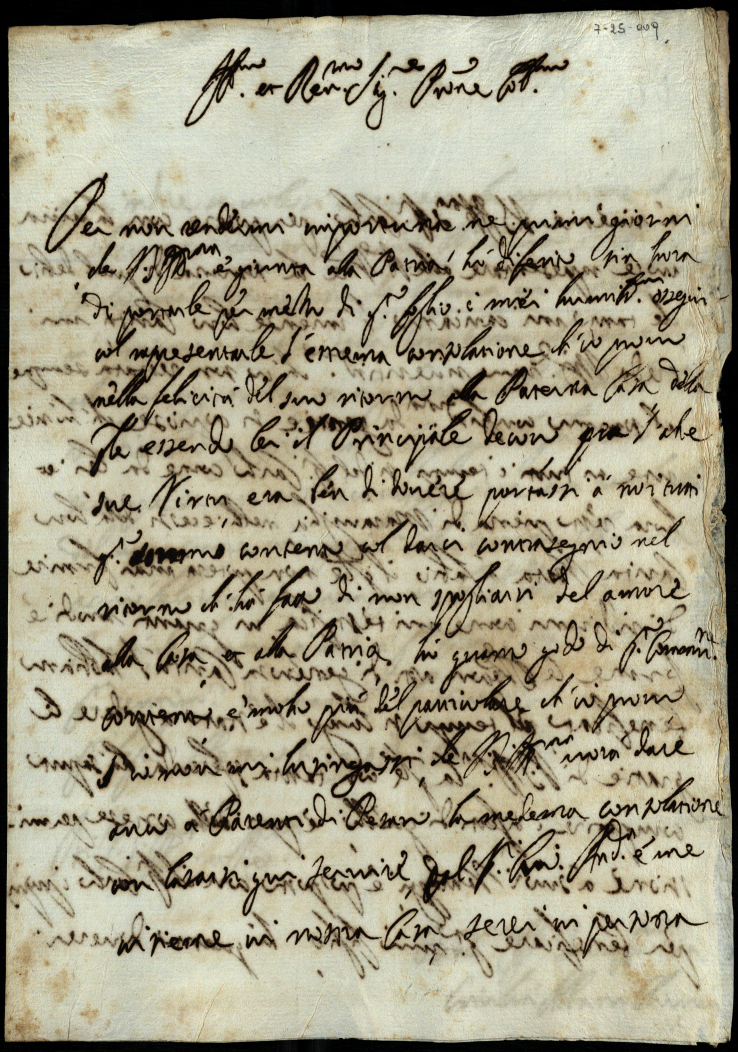 7-25-009
Ill.mo et Rev.mo Sig.re Prōne Col.mo
Per non rendermi importuno ne primi giorni
che V.S. Ill.ma è giunta alla Patria hò differito sin hora
di portarle per mezzo di q.to foglio i miei humiliss.mi ossequi
col rapresentarle l'estrema consolatione ch'io provo
nella felicità del suo ritorno alla Paterna Casa, della
q.le essendo lei il Principale decoro per l'alte
sue Virtù era ben di dovere portassi à noi tutti
q.to contento col darci contrasegnio nel
ritorno ch'hà fatto di non spogliarsi del amore
alla Casa et alla Patria, Io quanto godo di q.to comun
contento è molto più del particolare ch'io provo
mi lusingassi che V.S. Ill.ma vorà dare
anco a Parenti di Pesaro la medema consolatione
con lasciarsi qui servire dal S.r è me
insieme in nostra Casa, serei in persona